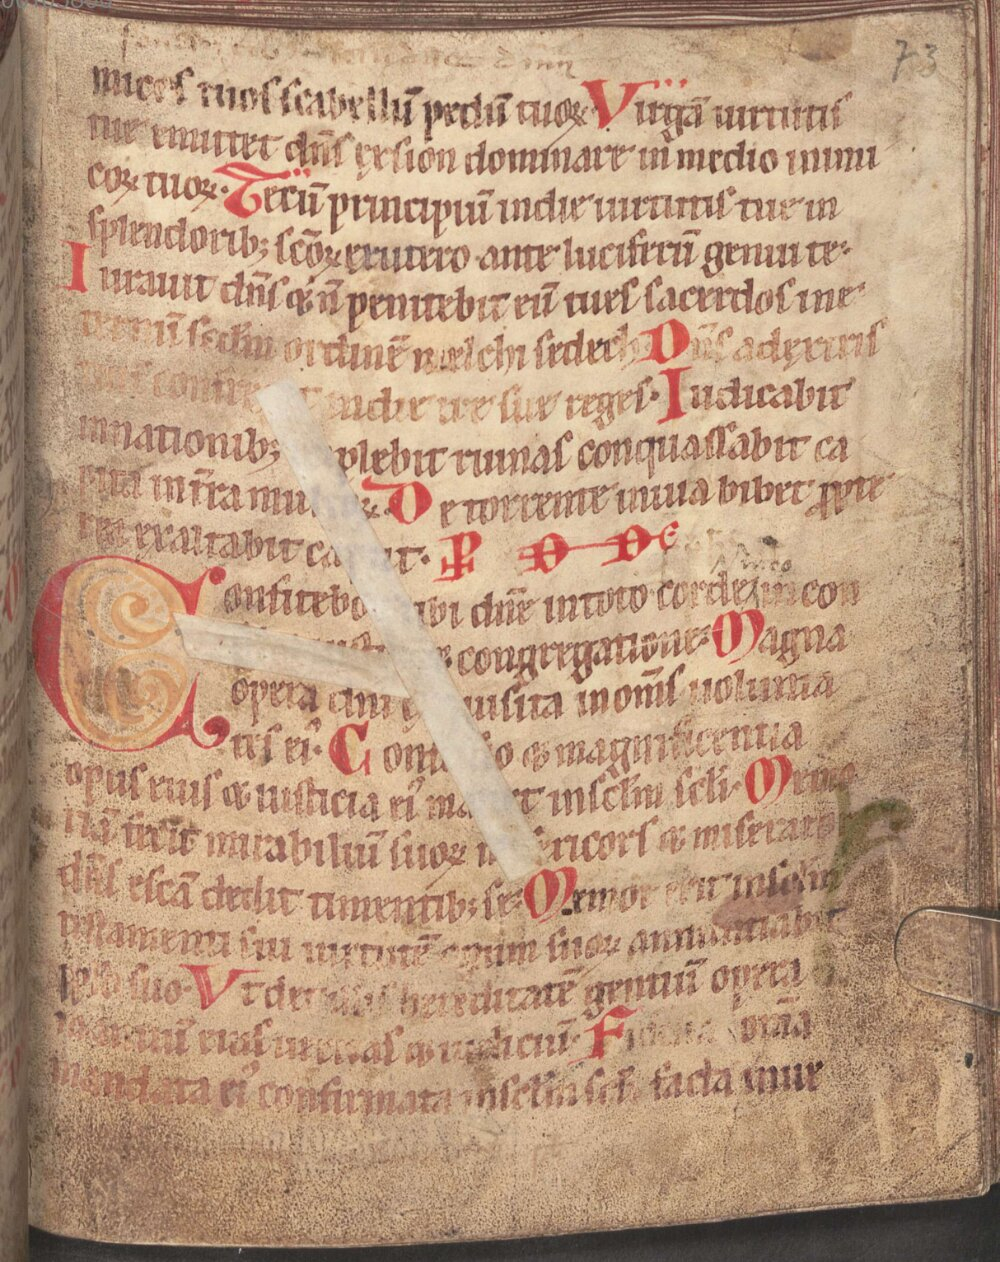 73
micos tuos scabellū pedū tuoꝝ Virgā uirtutis
tue emittet dn̄s ex sion dominare in medio inimi
coꝝ tuoꝝ. Tecū principiū in die uirtutis tue in
splendorib; sc̄oꝝ ex utero ante luciferū genui te.
Iurauit dn̄s & n̄ penitebit eū tu es sacerdos in e
ternū scd̄m ordinē melchisedech Dn̄s a dextris
tuis in die ire sue reges. Iudicabit
in nationib; plebit ruinas conquassabit ca
pita in t̄ra mu De torrente in uia bibet ꝓpte
rea exaltabit ca ut.
Confitebo ibi dn̄e in toto corde in con
congregatione Magna
opera dn̄i uisita in om̄s uolunta
tes ei. Con o & magnificentia
opus eius & iusticia ei ma t in sc̄lm sc̄li. Memo
riā fecit mirabiliū suoꝝ ericors & miserator
dn̄s escā dedit timentib; se. Memor erit in sc̄lm
testamenti sui uirtutē operum suoꝝ annuntiabit
pplo suo. Vt det illis hereditatē gentiū opera
manuū eius ueritas & iudiciū. F om̄ia
mandata ei confirmata in sc̄lm sc̄li facta in ue